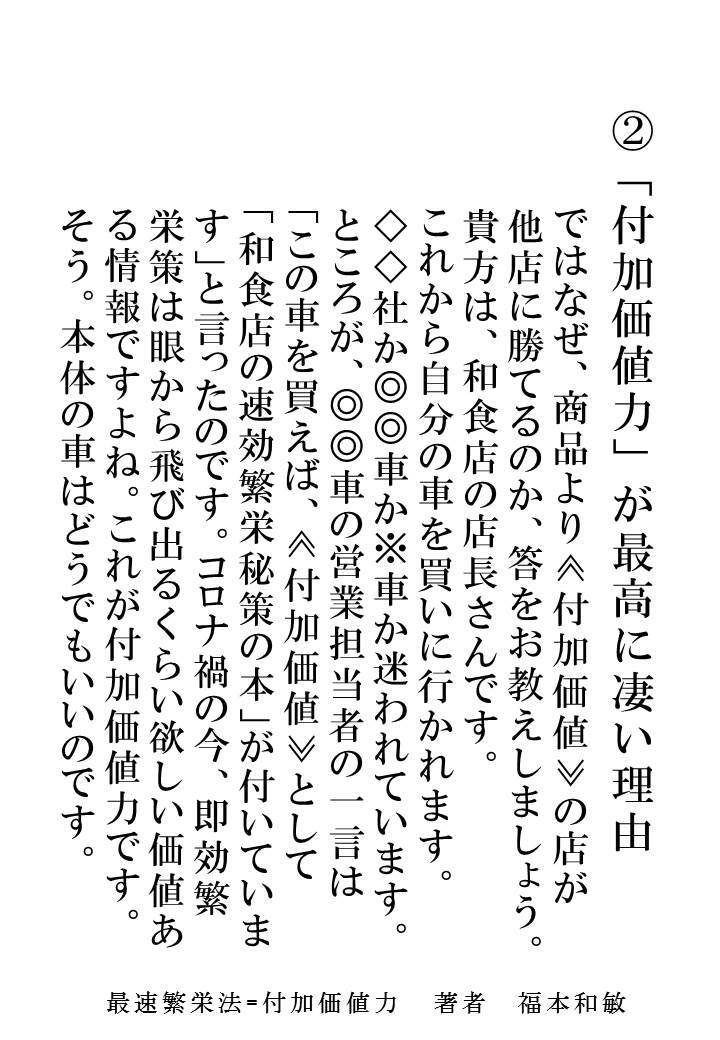 ②「付加価値力」が最高に凄い理由
ではなぜ、商品より≪付加価値≫の店が
他店に勝てるのか、答をお教えしましょう。
貴方は、和食店の店長さんです。
これから自分の車を買いに行かれます。
◇◇社か◎◎車か※車か迷われています。
ところが、◎◎車の営業担当者の一言は
「この車を買えば、≪付加価値≫として
「和食店の速効繁栄秘策の本」が付いていま
す」と言ったのです。コロナ禍の今、即効繁
栄策は眼から飛び出るくらい欲しい価値あ
る情報ですよね。これが付加価値力です。
そう。本体の車はどうでもいいのです。
最速繁栄法=付加価値力　著者　福本和敏